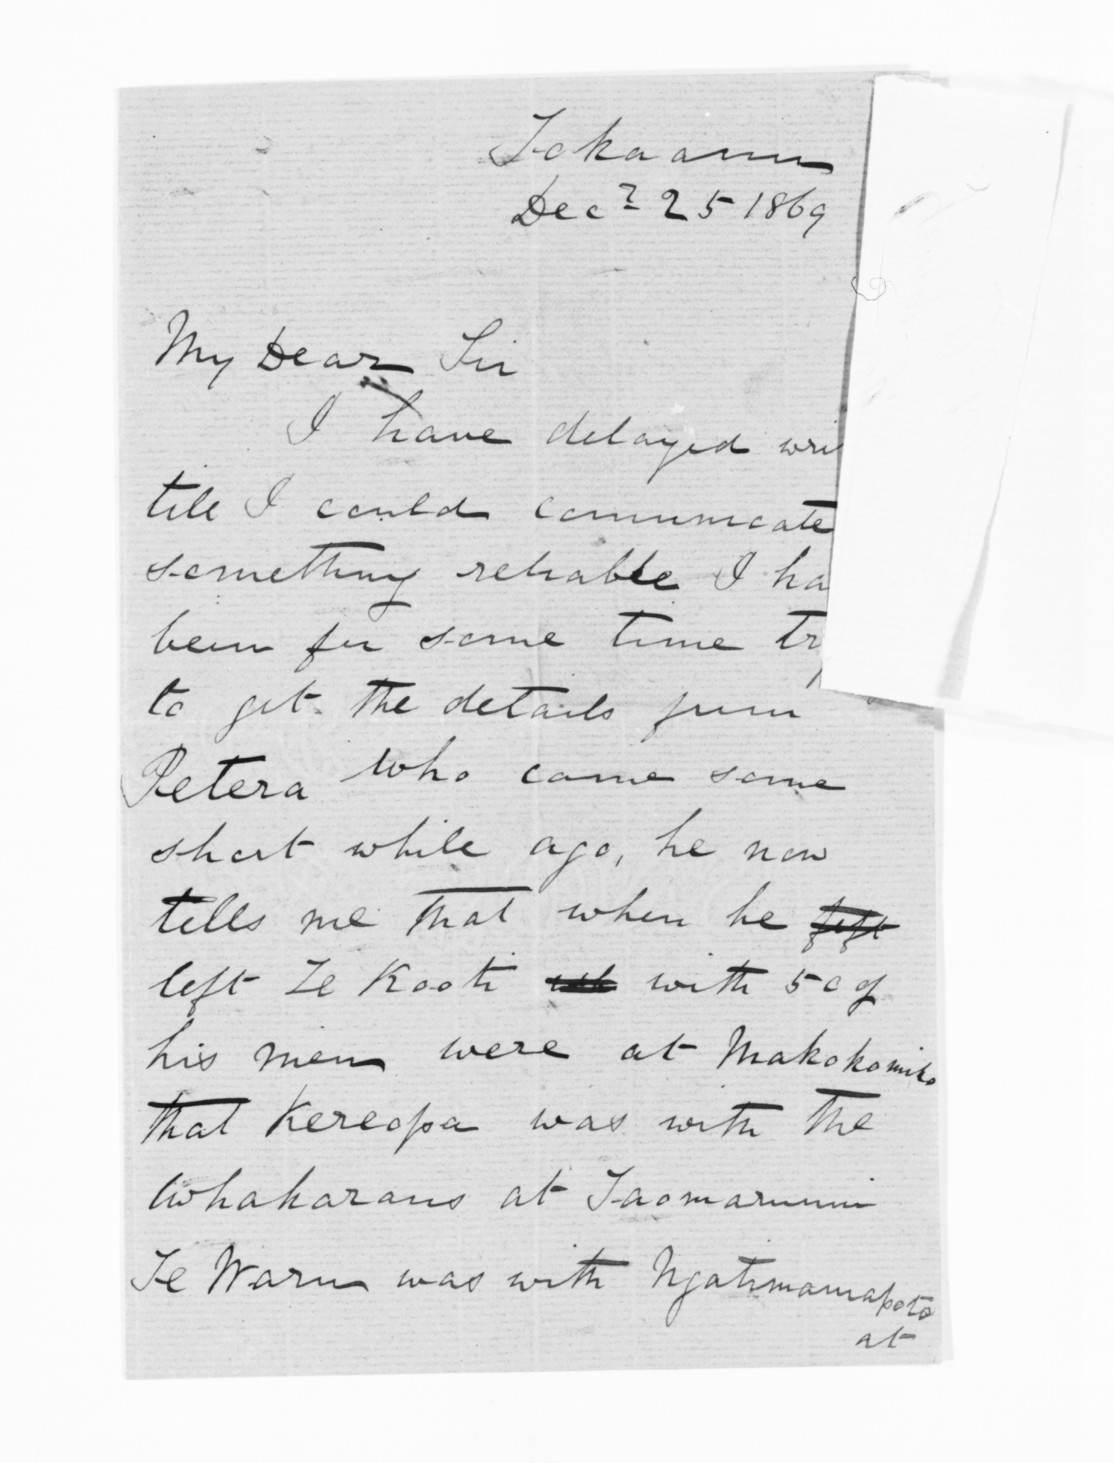 Tokaanu
Decr 25 1869
My Dear Sir
I have delayed wri
till I could comunicate
something reliable I ha
been for some time try
to get the details from
Petera who came some
short while ago, he now
tells me that when he
left Te Kooti with 50 of
his men were at Makokomiko
that Kereopa was with the
Whakaraus at Taomarunui
Te Waru was with Ngatimaniapoto
at